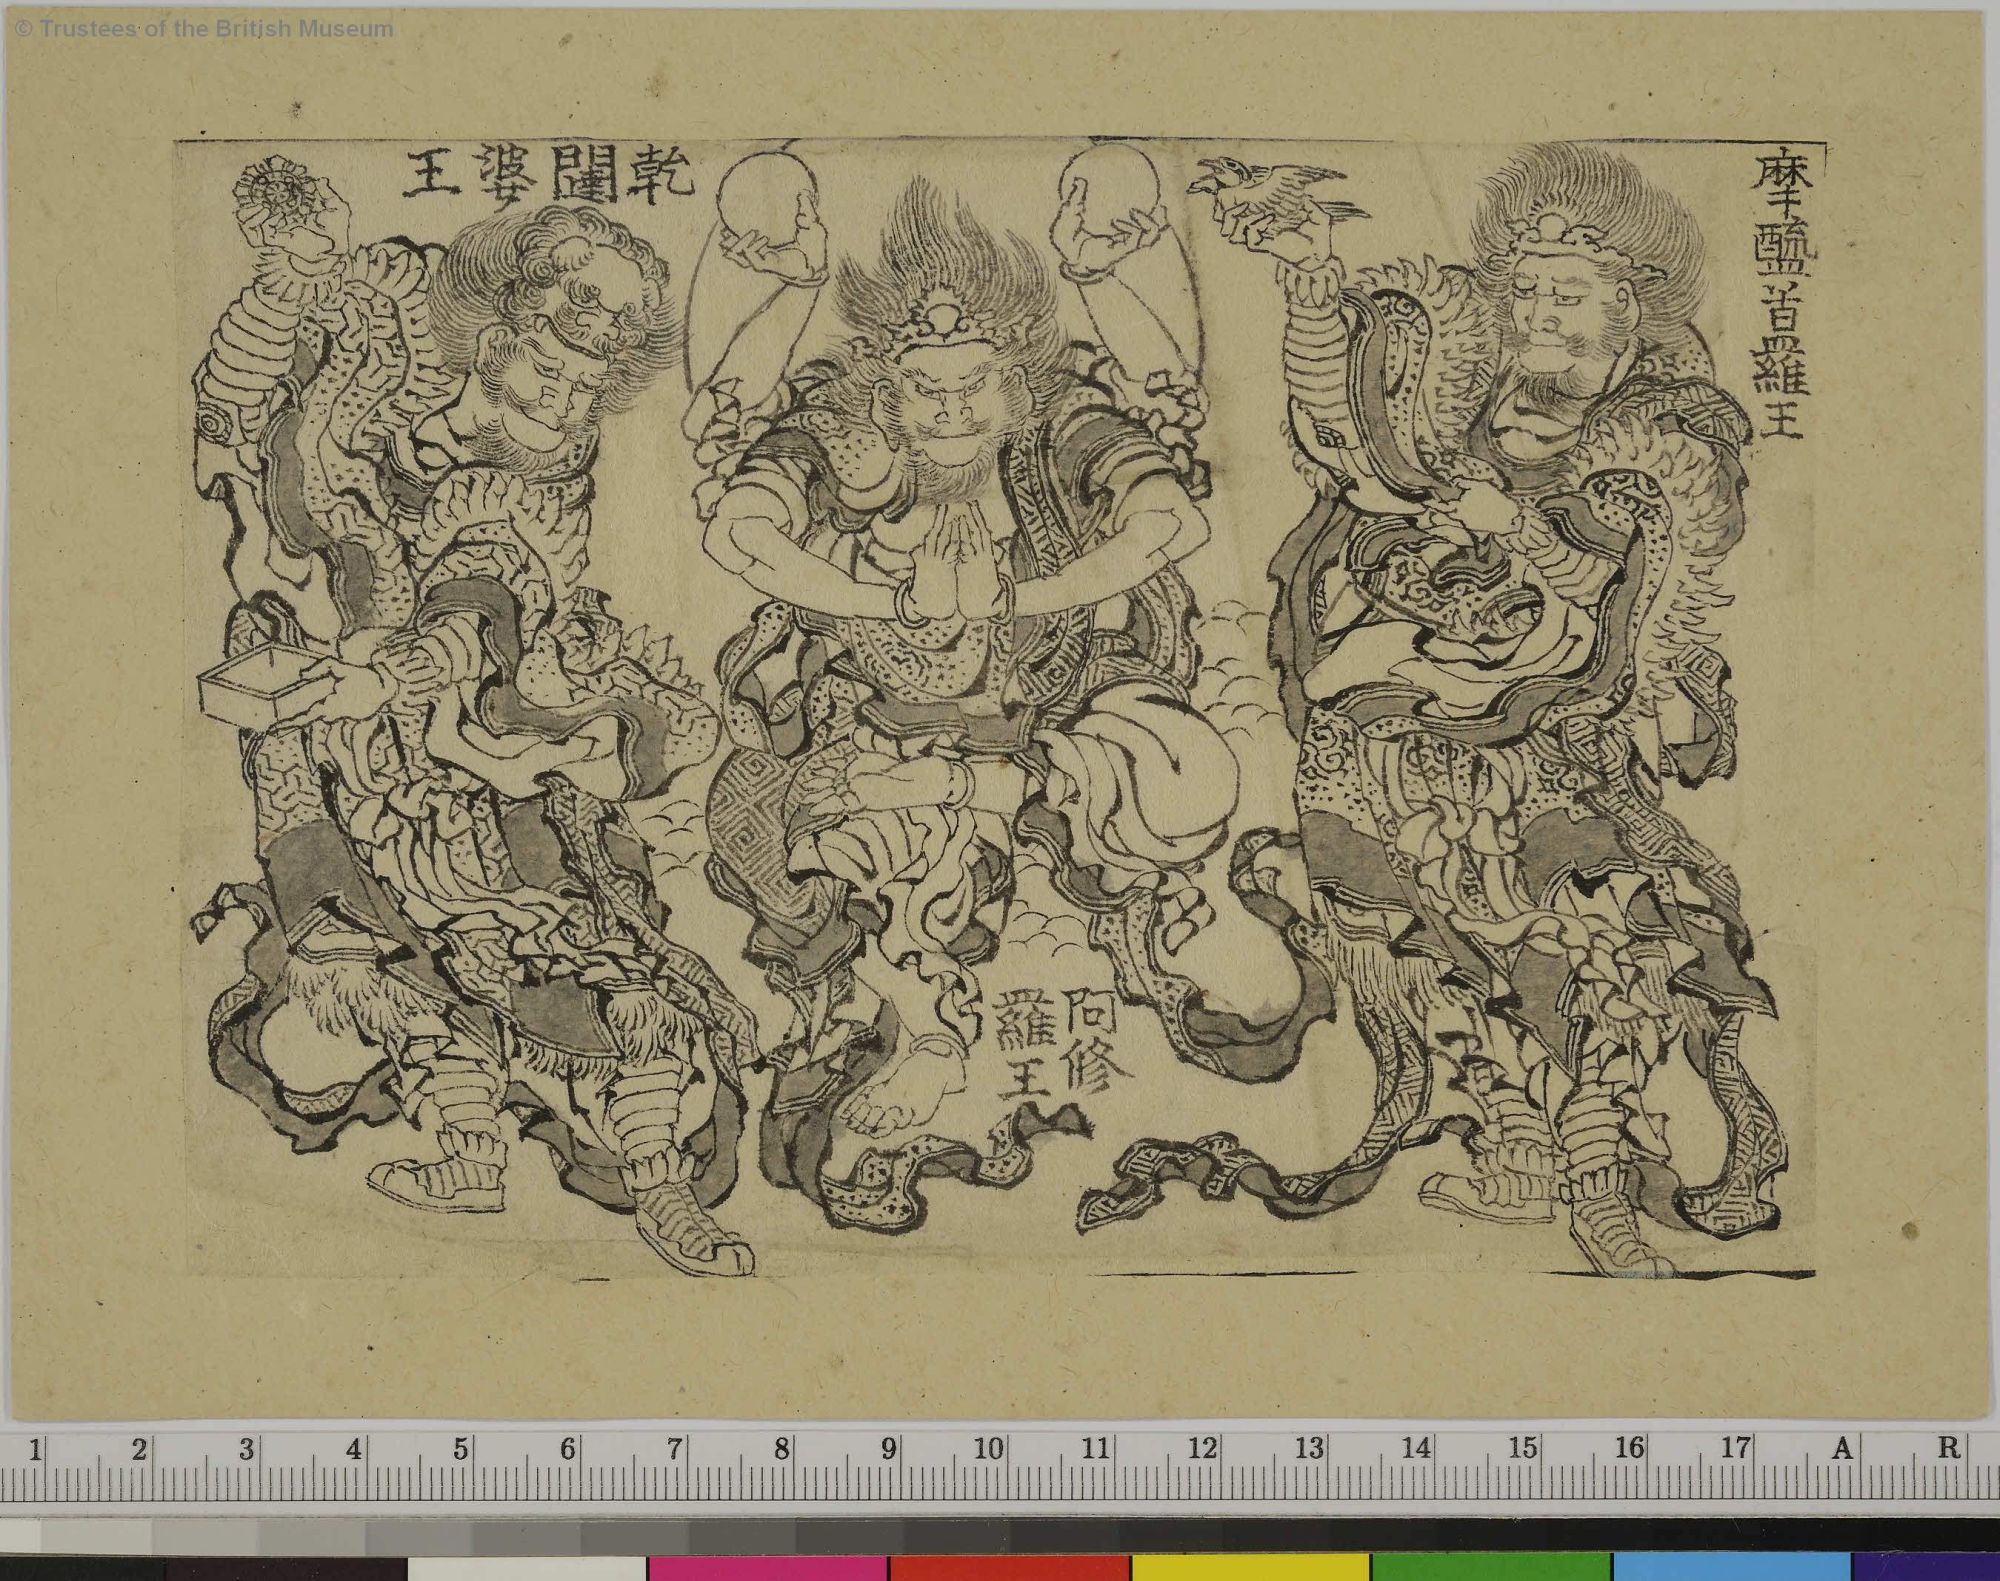 © Trustees of the British Museum
摩醯首羅王
乾闥婆王
阿修
羅王
1 2 3 4 5 6 7 8 9 10 11 12 13 14 15 16 17 A R